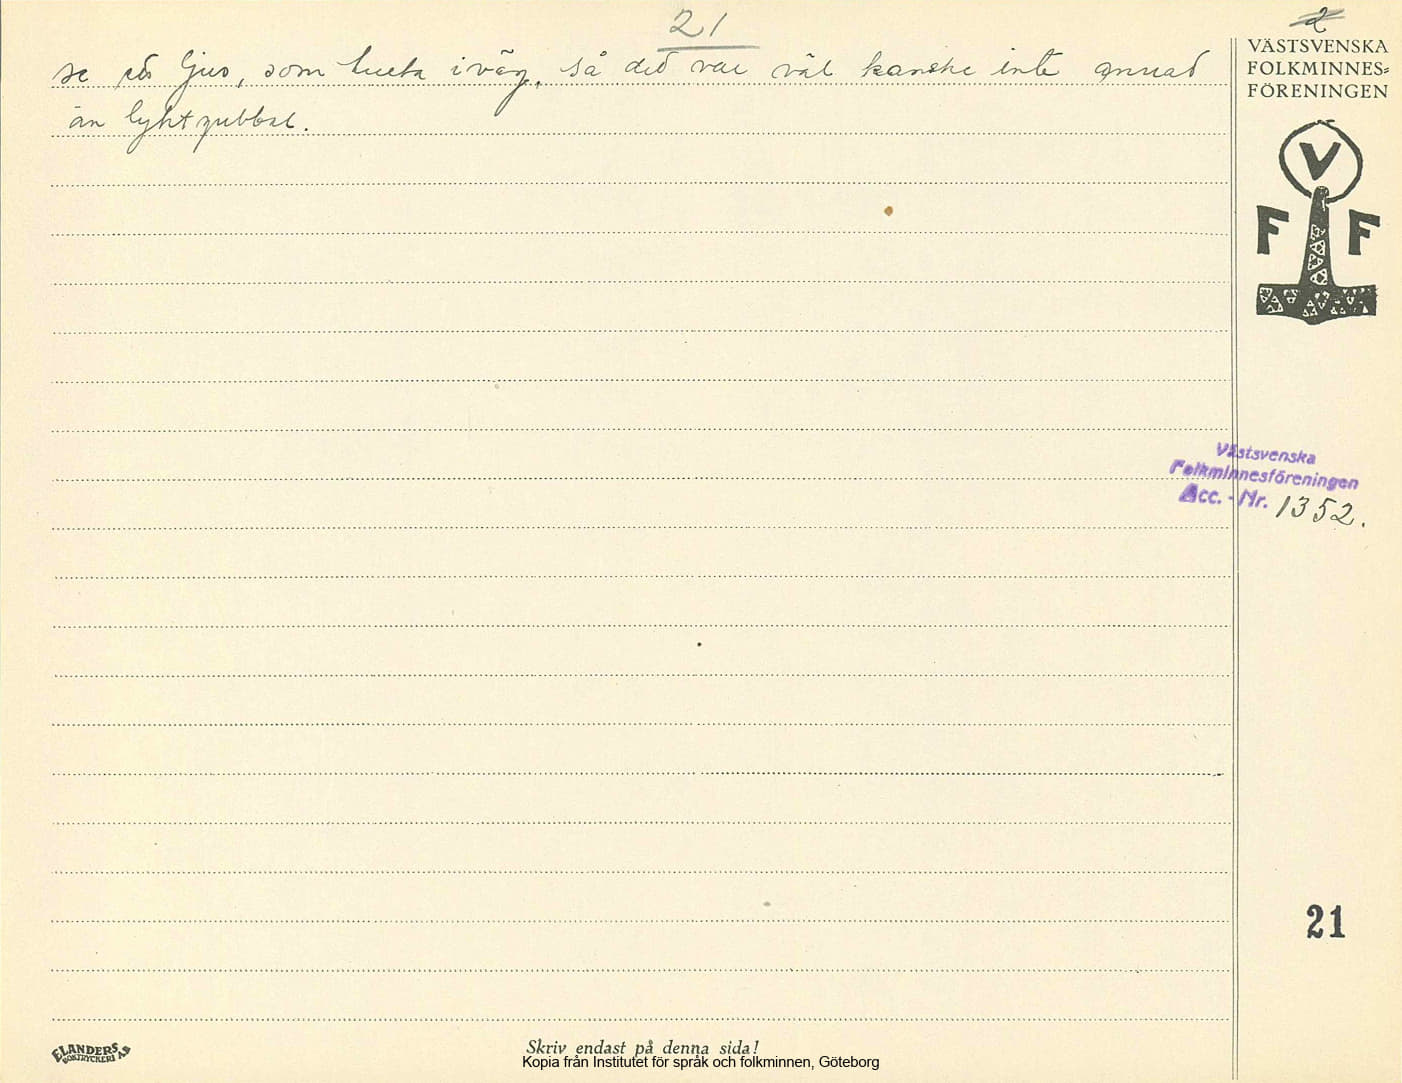 21
se ett ljus, som lueta iväg, så det var väl kanske inte annat
än lyktgubbal.
2
VÄSTSVENSKA
FOLKMINNES=
FÖRENINGEN
V
F F
Västsvenska
Folkminnesföreningen
Acc. - Nr. 1352.
21
ELANDERS
BOKTRYCKERI AB
Skriv endast på denna sida!
Kopia från Institutet för språk och folkminnen, Göteborg